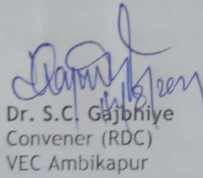 Dr. S.C. Gajbhiye
Convener (RDC)
VEC Ambikapur